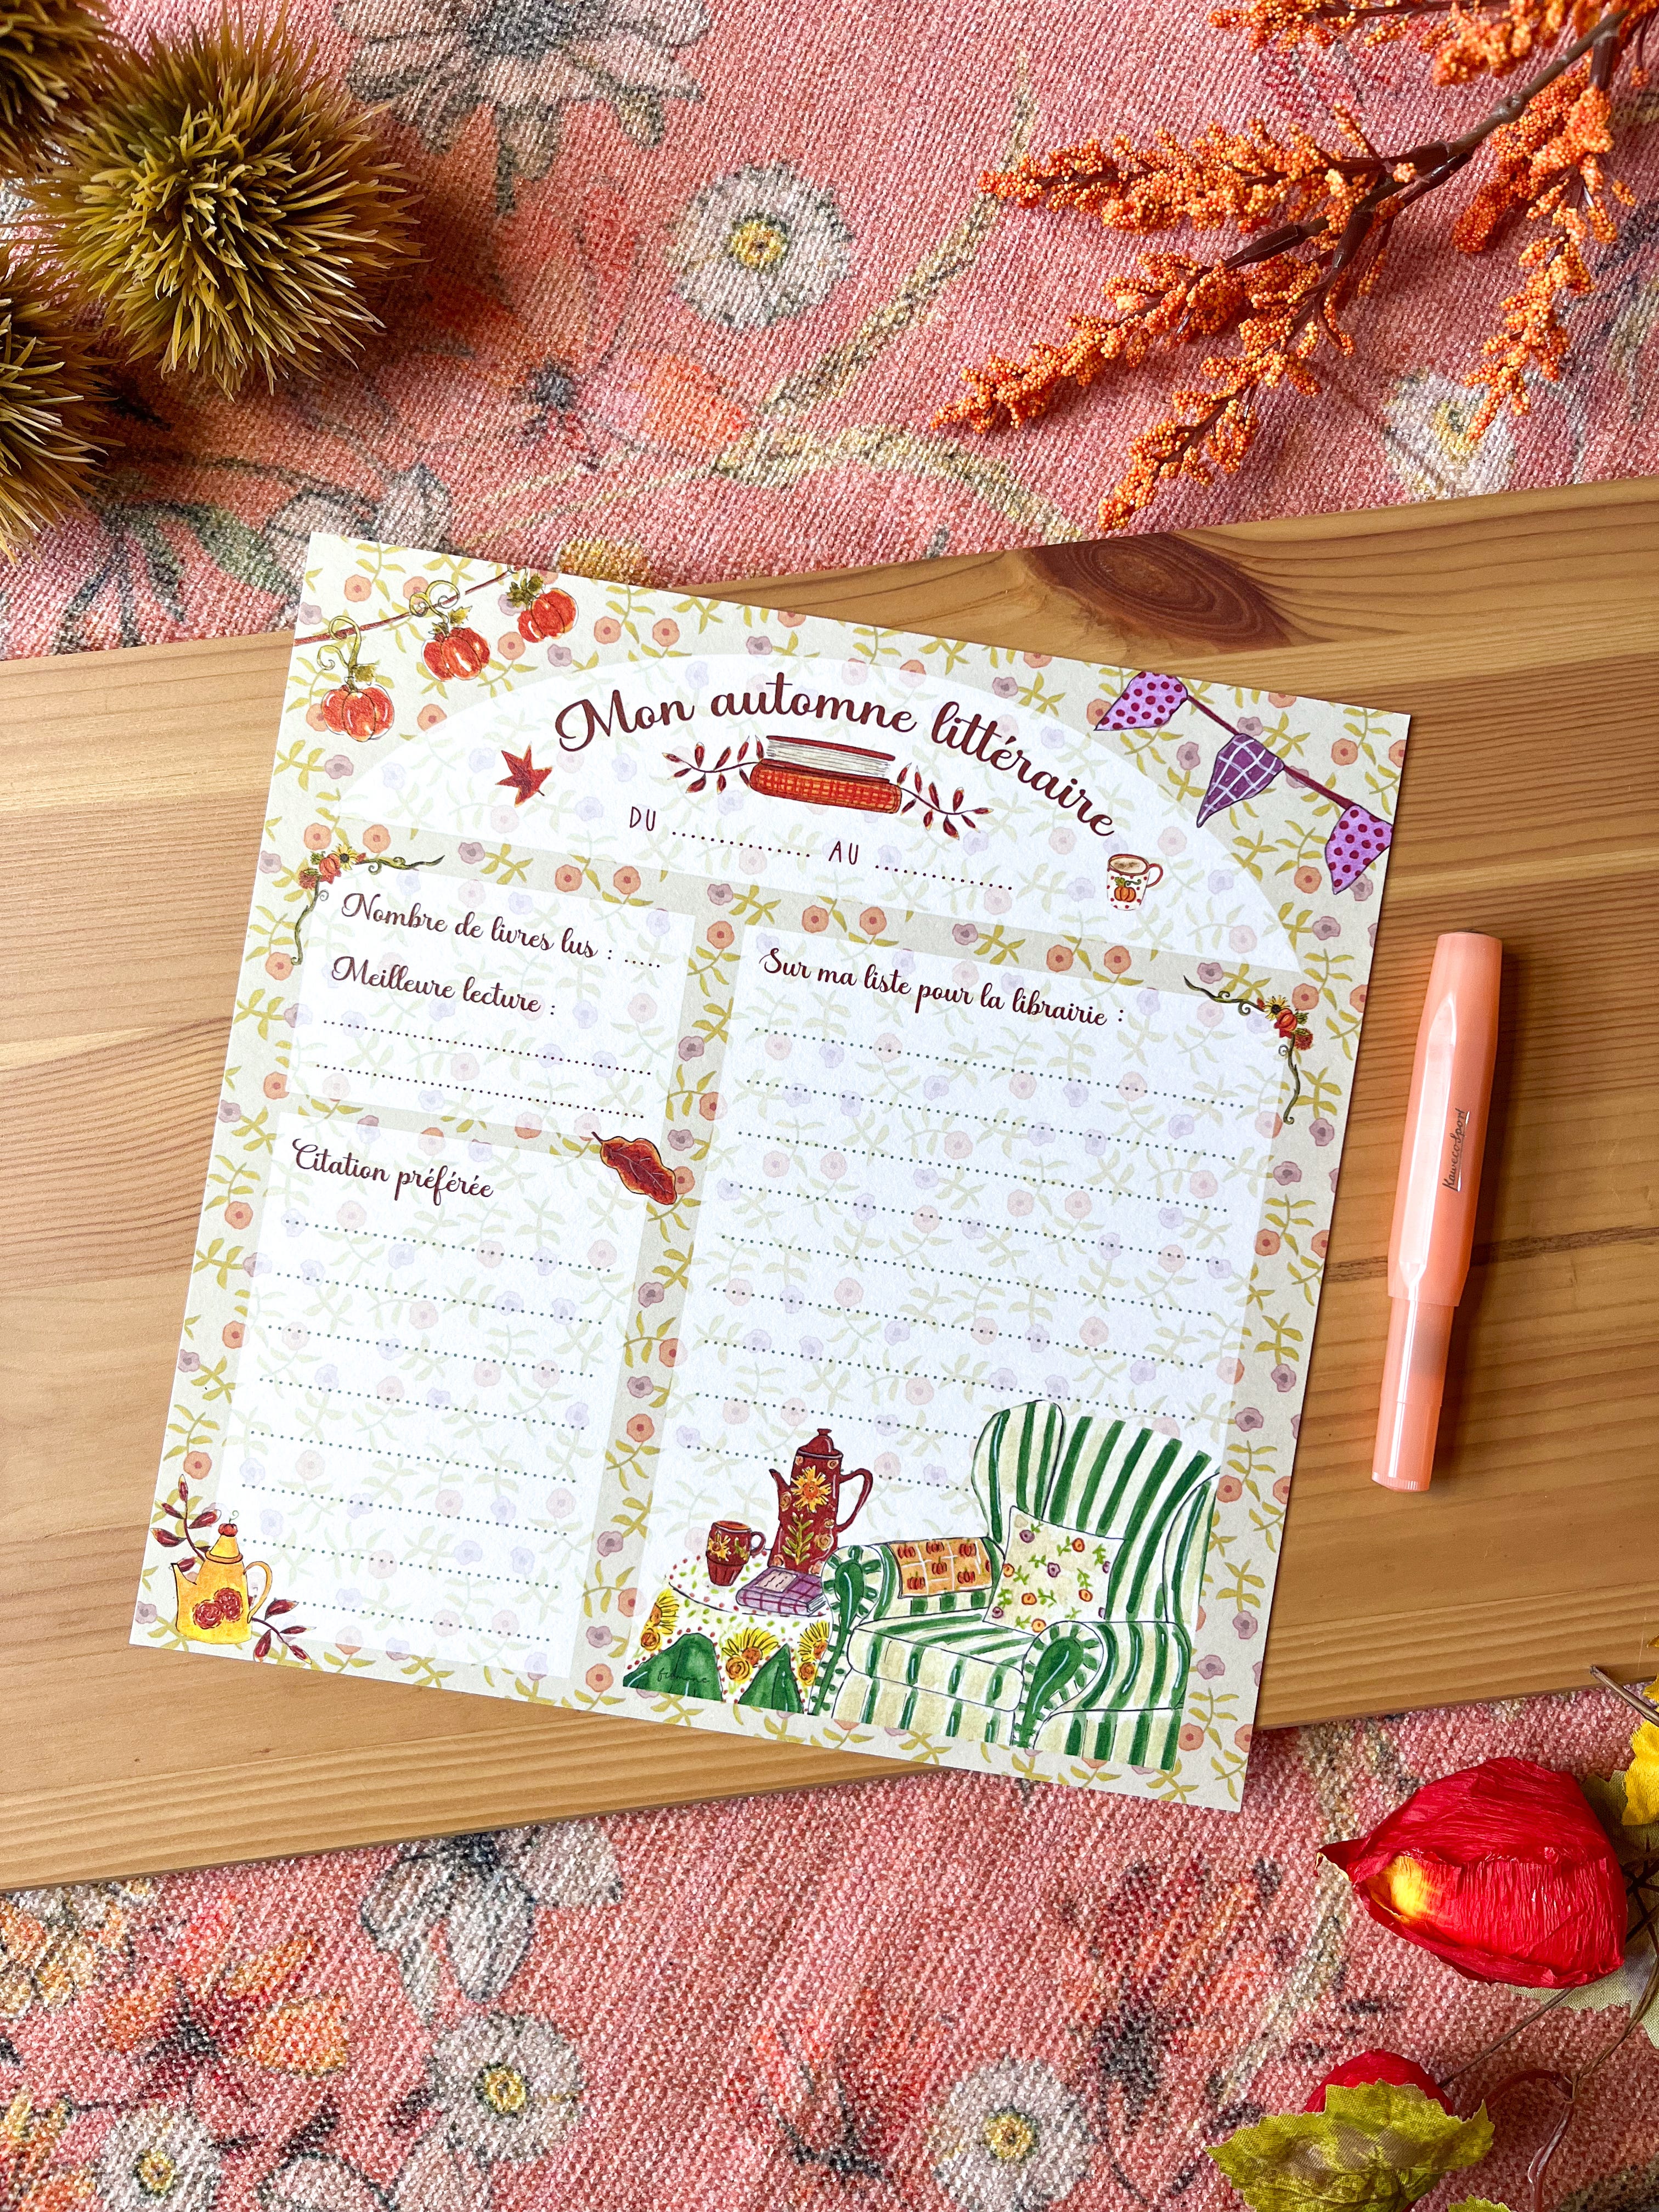 Mon automne littéraire
DU ............. AU .............
Nombre de livres lus : .....
Meilleure lecture :
Sur ma liste pour la librairie :
Citation préférée
Kaweco Sport